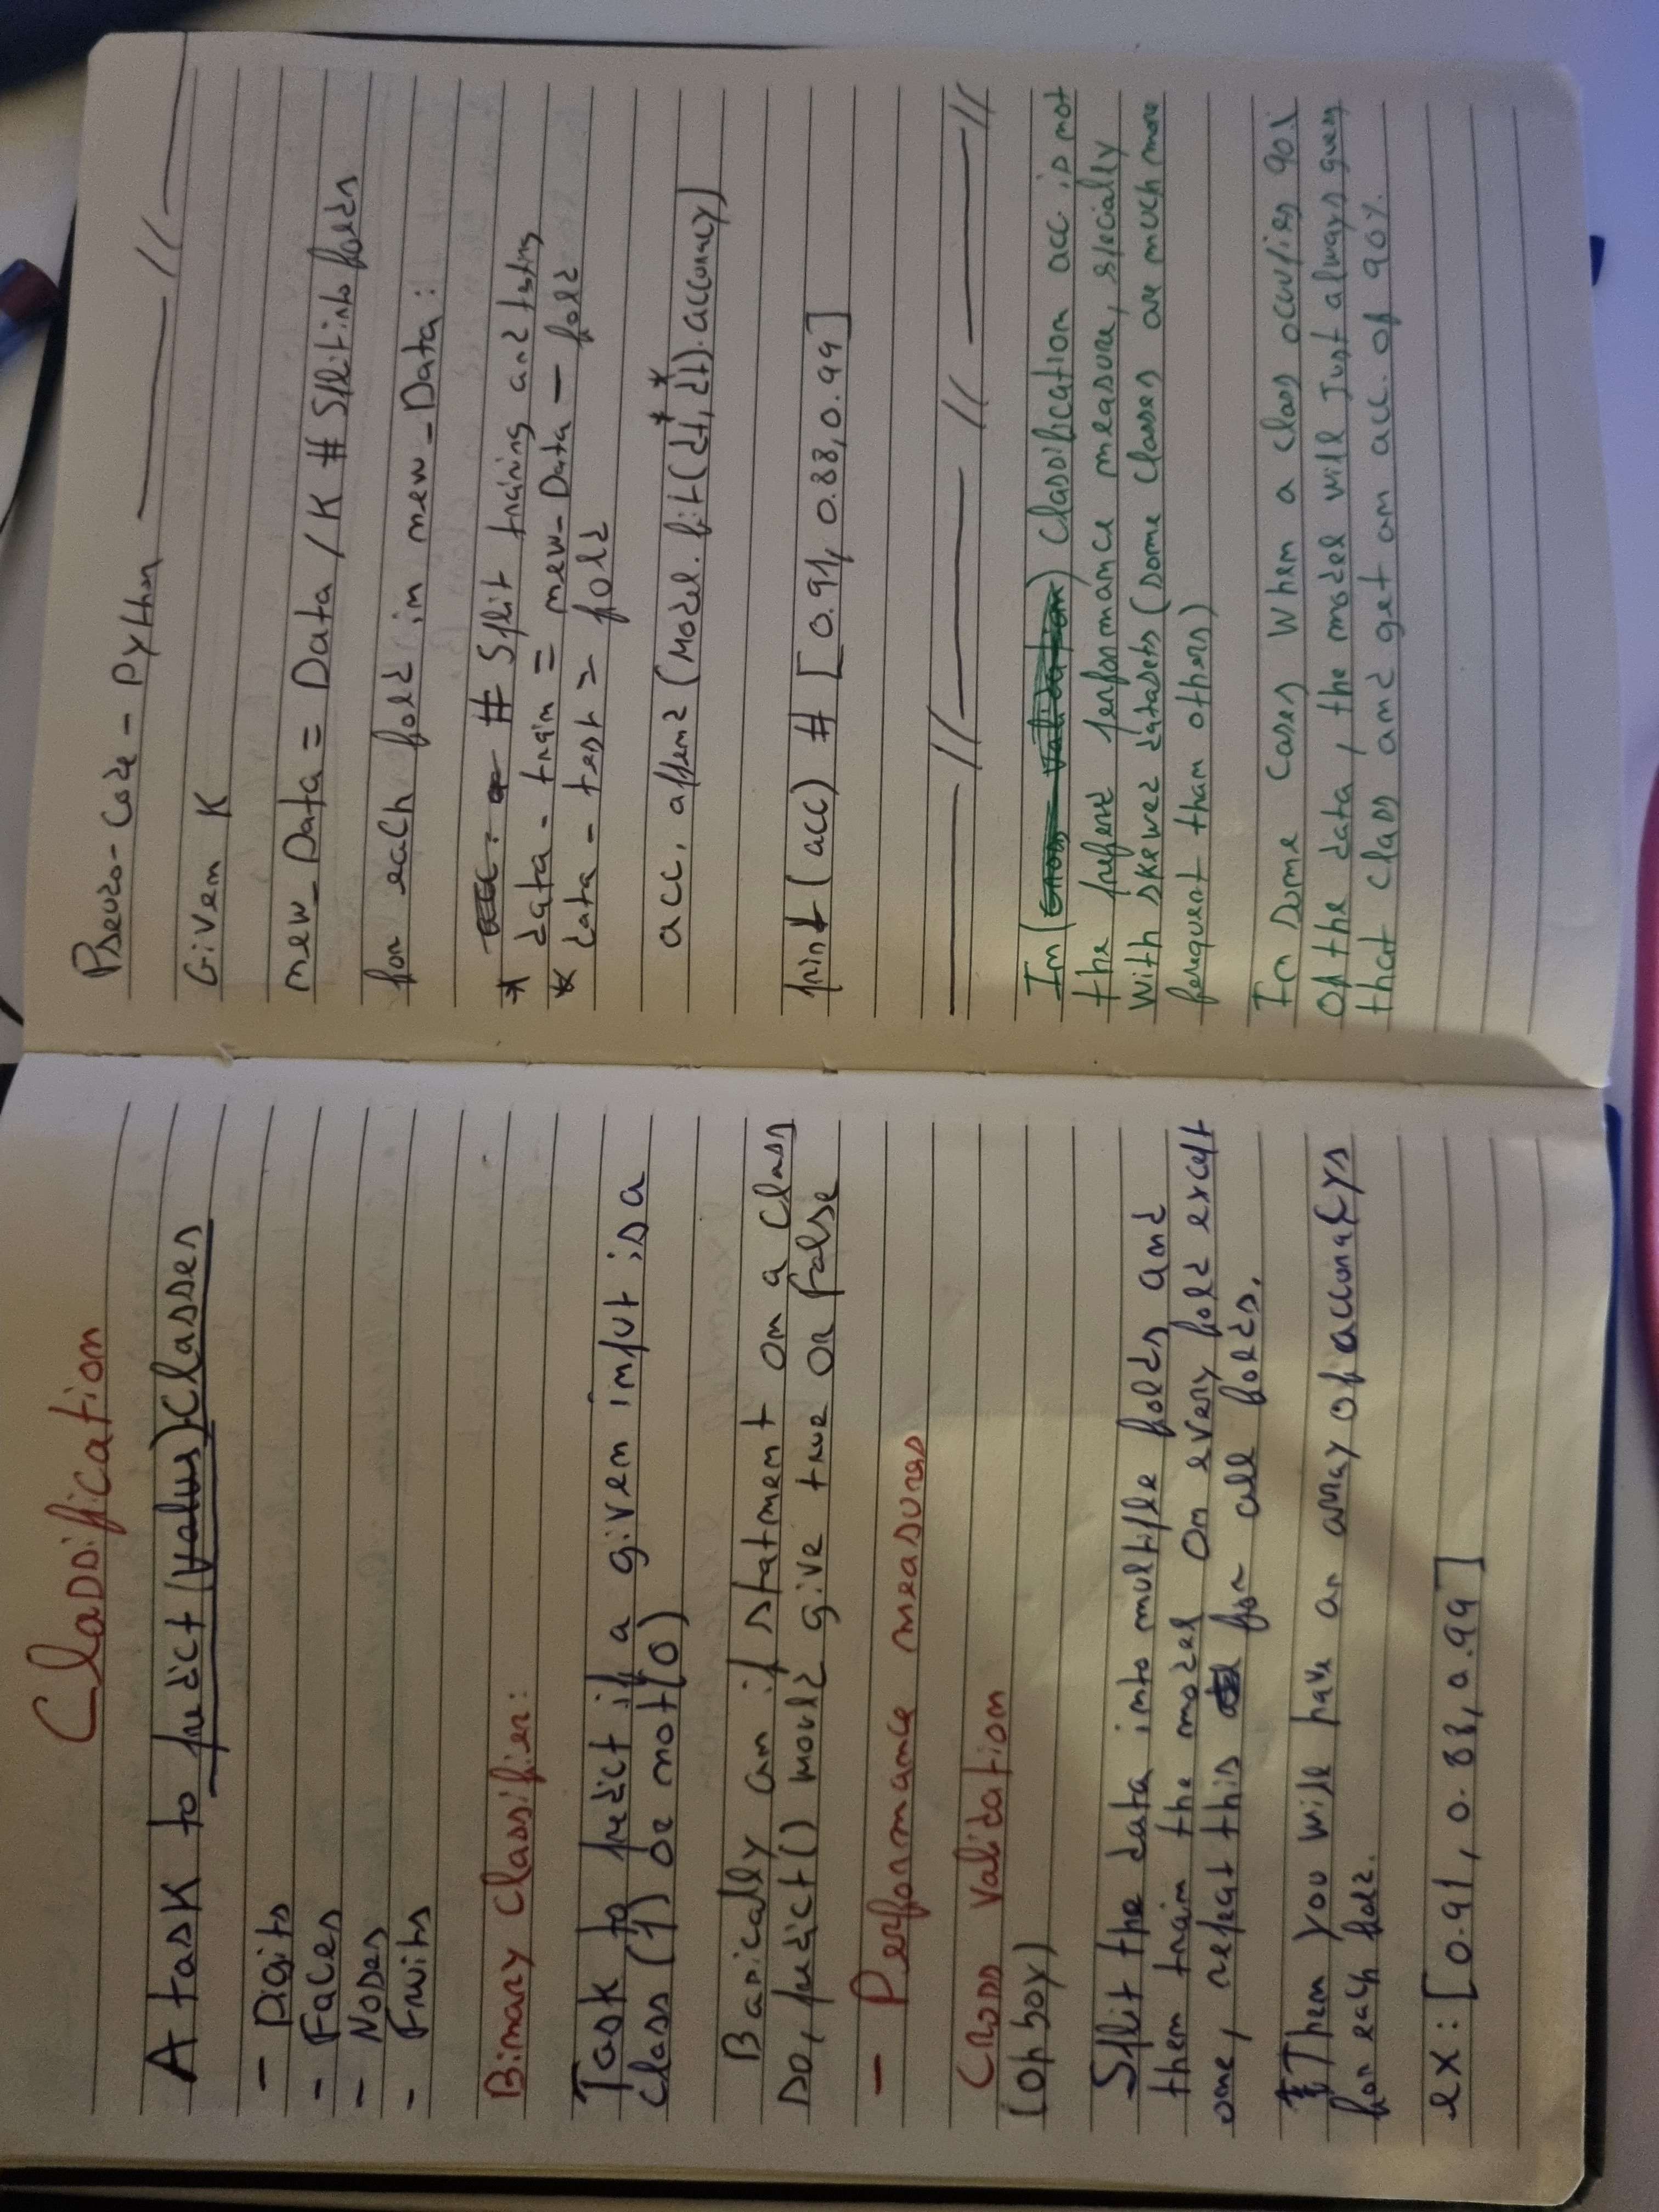 Classification
A task to predict (values) Classes
- Digits
- Faces
- Nodes
- Fruits
Binary Classifier:
Task to predict if a given input is a
class (1) or not (0)
Basically an if statment on a class
so, predict() would give true or false
- Performance measures
Cross Validation
(Oh boy)
Split the data into multiple folds and
then train the model on every fold except
one, repeat this for all folds.
Then you will have an array of accuracys
for each fold.
ex: [0.91, 0.88, 0.99]
Pseudo-Code-Python
Given K
new_Data = Data / K # Split into folds
for each fold in new_Data:
acc. # Split training and testing
* data-train = new-Data - fold
* data-test = fold
acc. append (Model.fit(dt*, dt*).accuracy)
print (acc) # [0.91, 0.88, 0.99]
In (Cross Validation) Classification acc. is not
the preferd performance measure, specially
with skewed datasets (some classes are much more
ferequent than others)
In some cases when a class occupies 90%
of the data, the model will just always guess
that class and get an acc. of 90%.